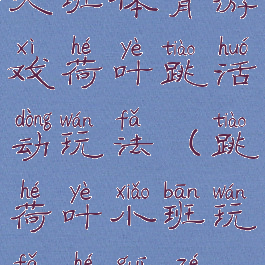 大班体育游
xì hé yè tiào huó
戏荷叶跳活
dòng wán fǎ tiào
动玩法（跳
hé yè xiǎo bān wán
荷叶小班玩
fǎ hé guī zé